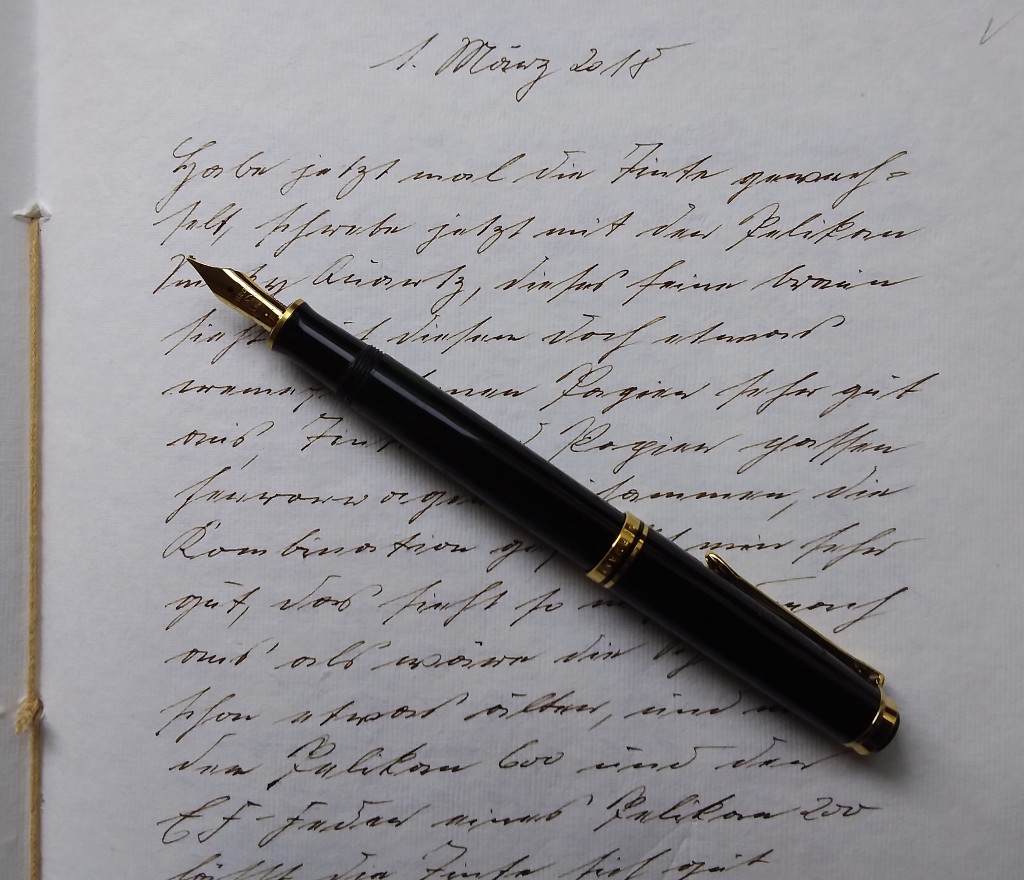 1. März 2018
Habe jetzt mal die Tinte gewech=
selt, schreibe jetzt mit der Pelikan
Quartz, dieses feine braun
sieht diesem doch etwas
Papier sehr gut
aus, Papier passen
die
Kombination mir sehr
gut, das sieht so danach
aus als wäre die
schon etwas älter, und
der Pelikan 600 und der
EF-Feder eines Pelikan 200
läßt die Tinte sich gut